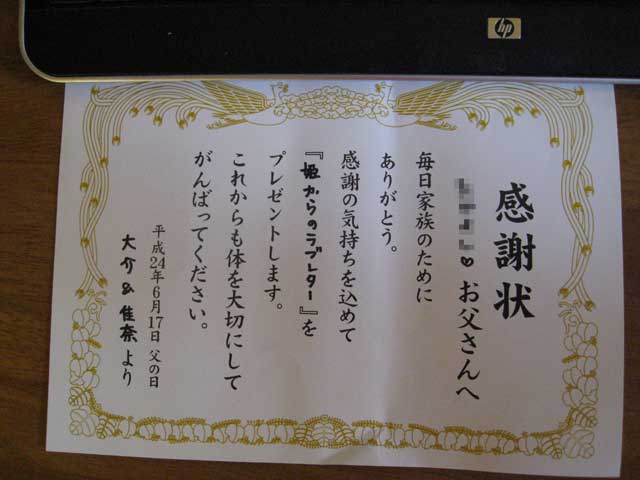 hp
感謝状
お父さんへ
毎日家族のために
ありがとう。
感謝の気持ちを込めて
『姫からのラブレター』を
プレゼントします。
これからも体を大切にして
がんばってください。
平成24年6月17日 父の日
大介&佳奈より